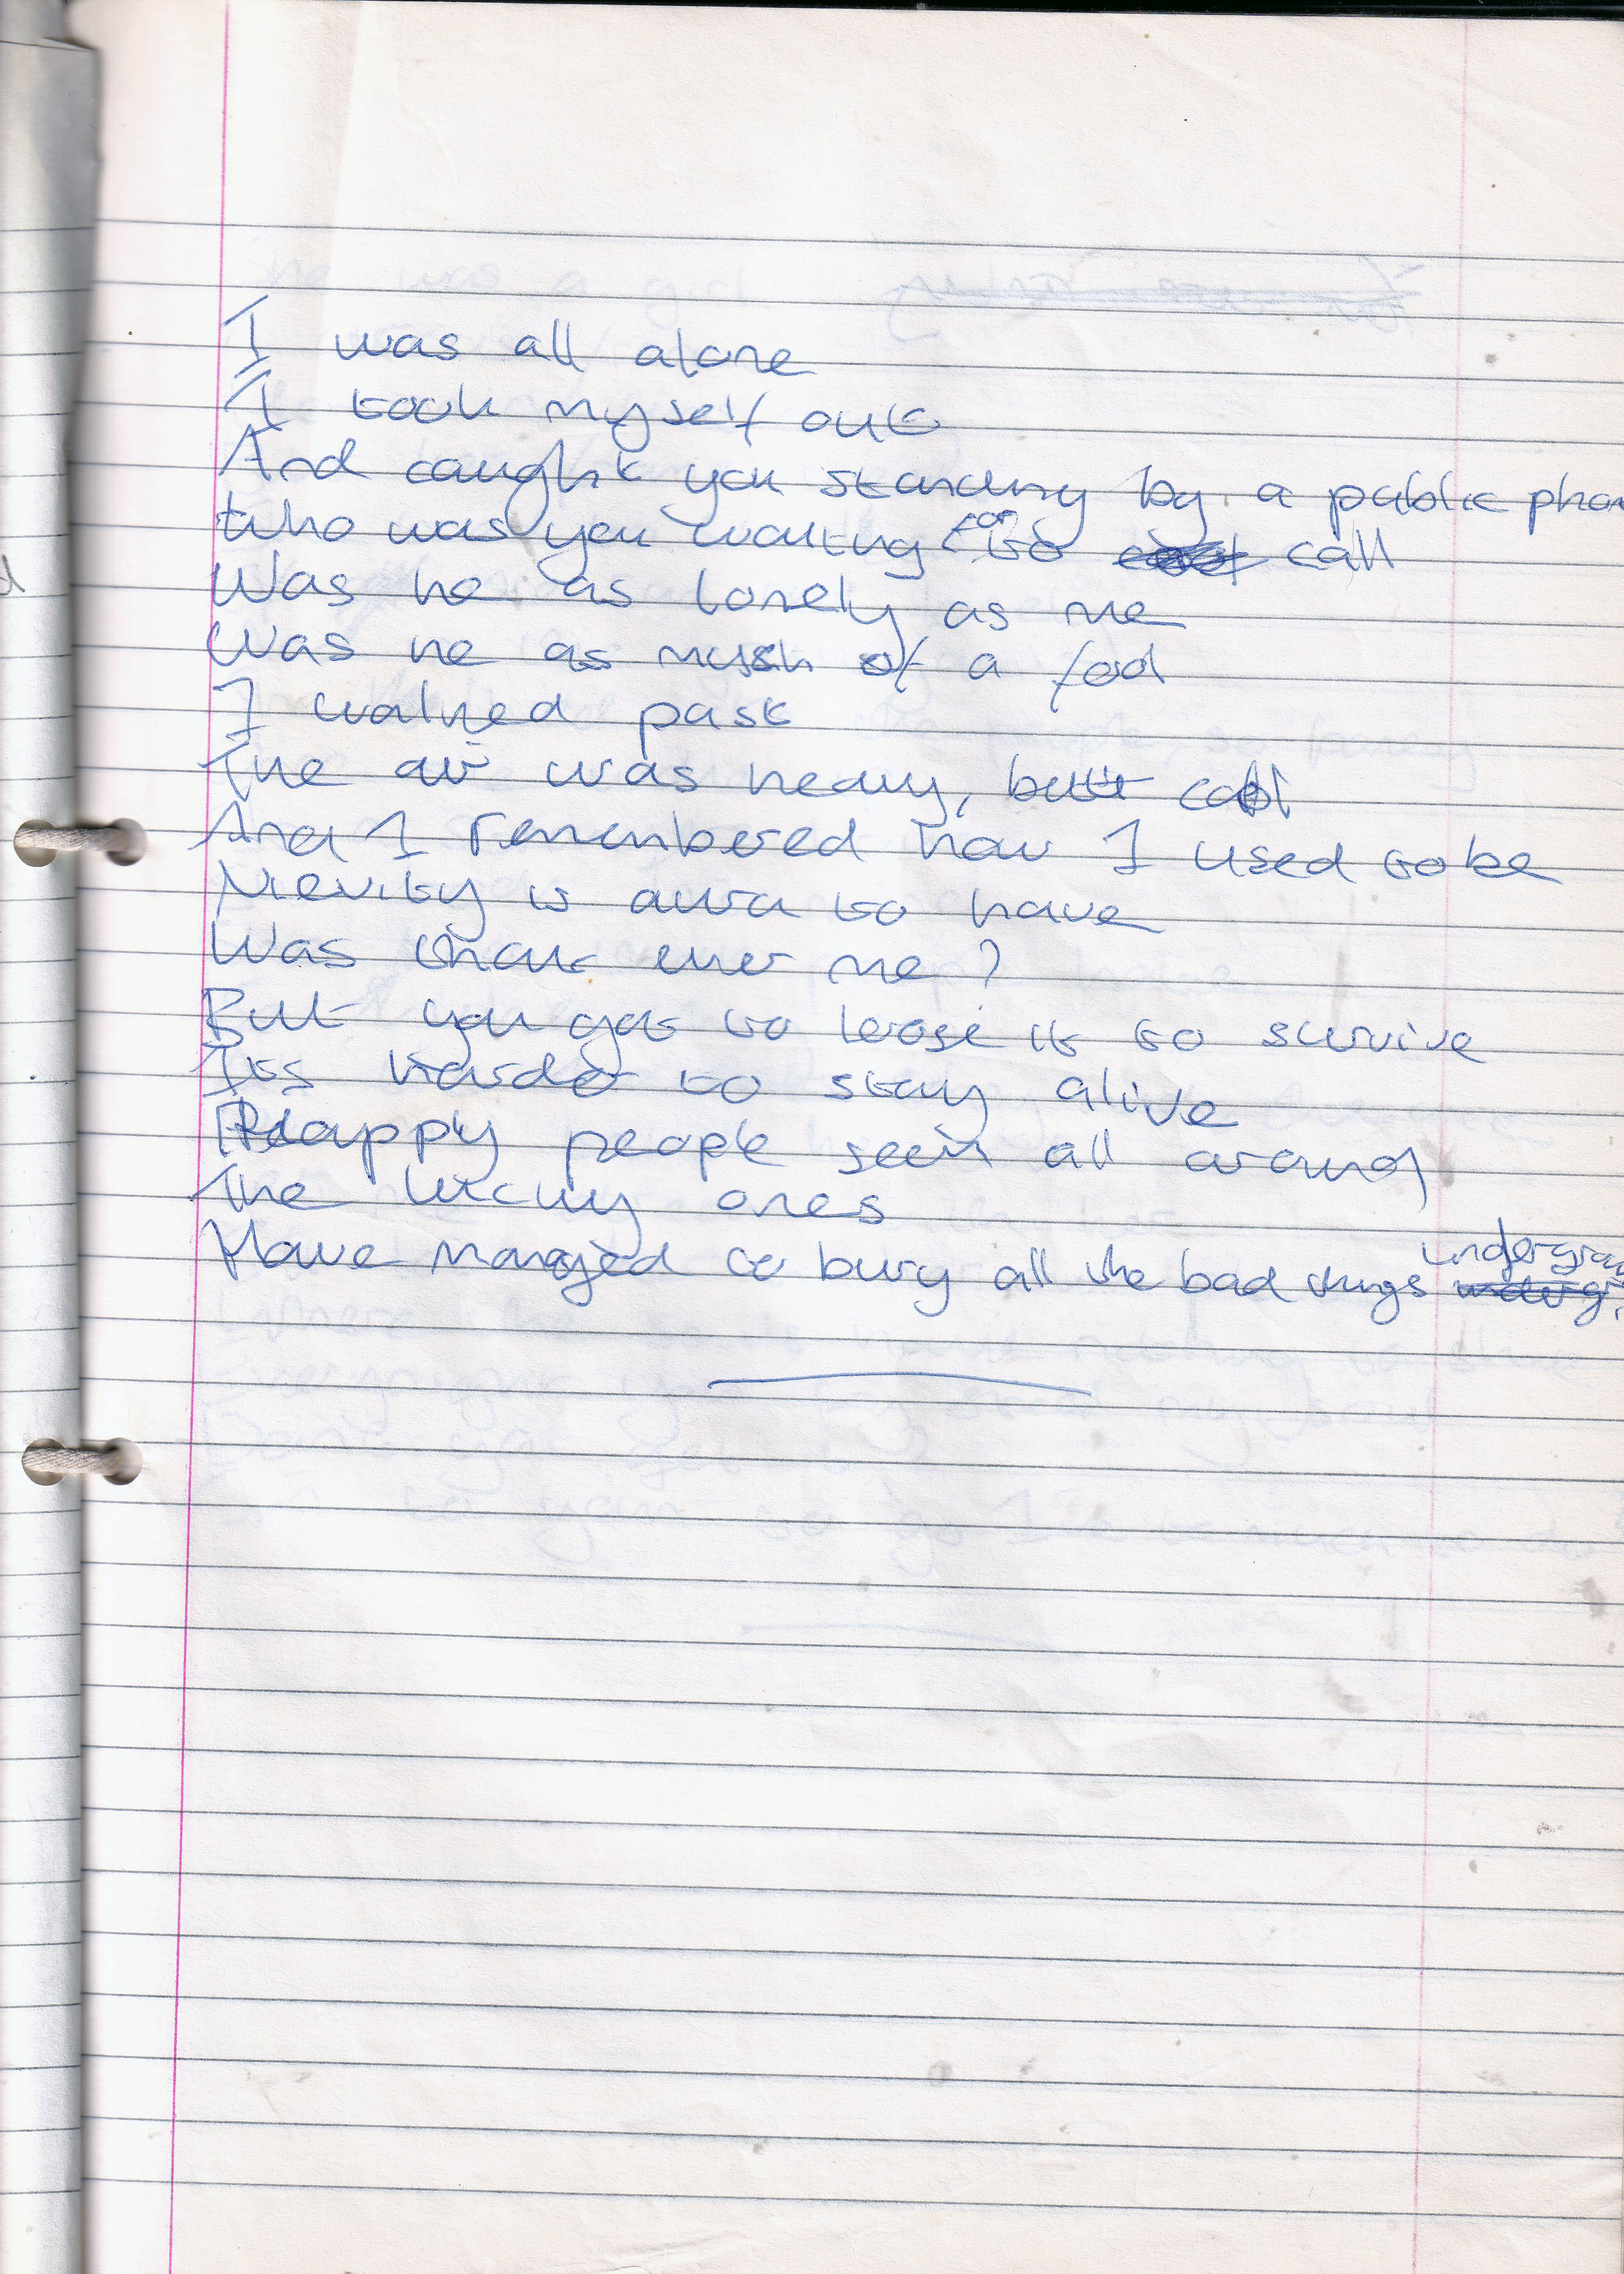 I was all alone
I took myself out
And caught you standing by a public phon
Who was you waiting for to call
Was he as lonely as me
Was he as much of a fool
I walked past
The air was heavy, but cool
And I remembered how I used to be
to have
Was that ever me?
But you got to loose it to survive
Its harder to stay alive
Happy people seem all around
The lucky ones
Have managed to bury all the bad things undergrou